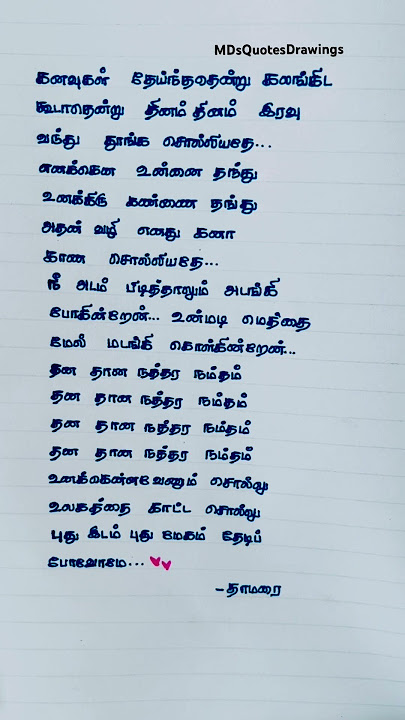 MDsQuotesDrawings
கனவுகள் தேய்ந்ததென்று கலங்கிட
கூடாதென்று தினம் தினம் இரவு
வந்து தூங்க சொல்லியதே...
எனக்கென உன்னை தந்து
உனக்கிரு கண்ணை தந்து
அதன் வழி எனது கனா
காண சொல்லியதே...
நீ அடம் பிடித்தாலும் அடங்கி
போகின்றேன்... உன்மடி மெத்தை
மேல் மடங்கி கொள்கின்றேன்...
தன தான நத்தர நம்தம்
தன தான நத்தர நம்தம்
தன தான நத்தர நம்தம்
தன தான நத்தர நம்தம்
உனக்கென்னவேணும் சொல்லு
உலகத்தை காட்ட சொல்லு
புது இடம் புது மேகம் தேடிப்
போவோமே...
-தாமரை